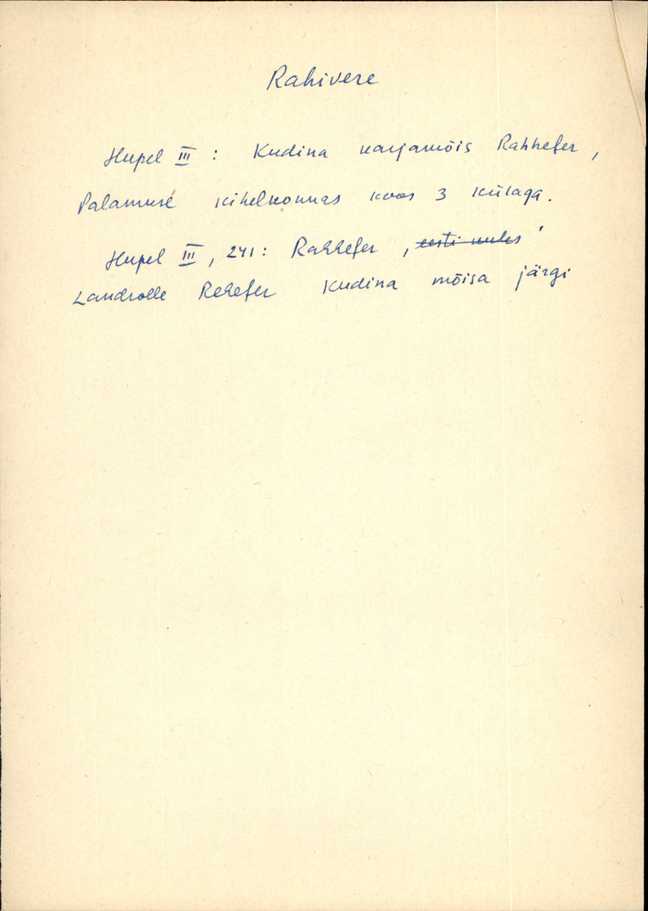 Rahivere
Hupel III : Kudina karjamõis Rahhefer,
Palamuse kihelkonnas koos 3 külaga.
Hupel III, 241: Rahhefer, eesti
Landrolle Rehefer Kudina mõisa järgi